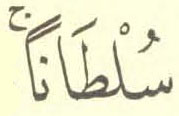 سُلْطَانًاۚ